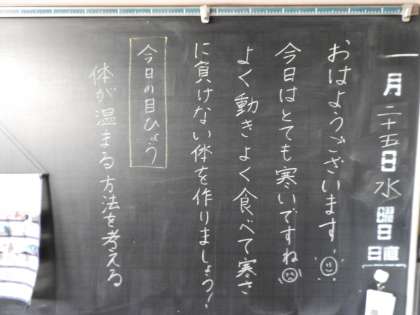 一月二十五日水曜日
日直
おはようございます。
今日はとても寒いですね
よく動きよく食べて寒さ
に負けない体を作りましょう！
今日の目ひょう
体が温まる方法を考える